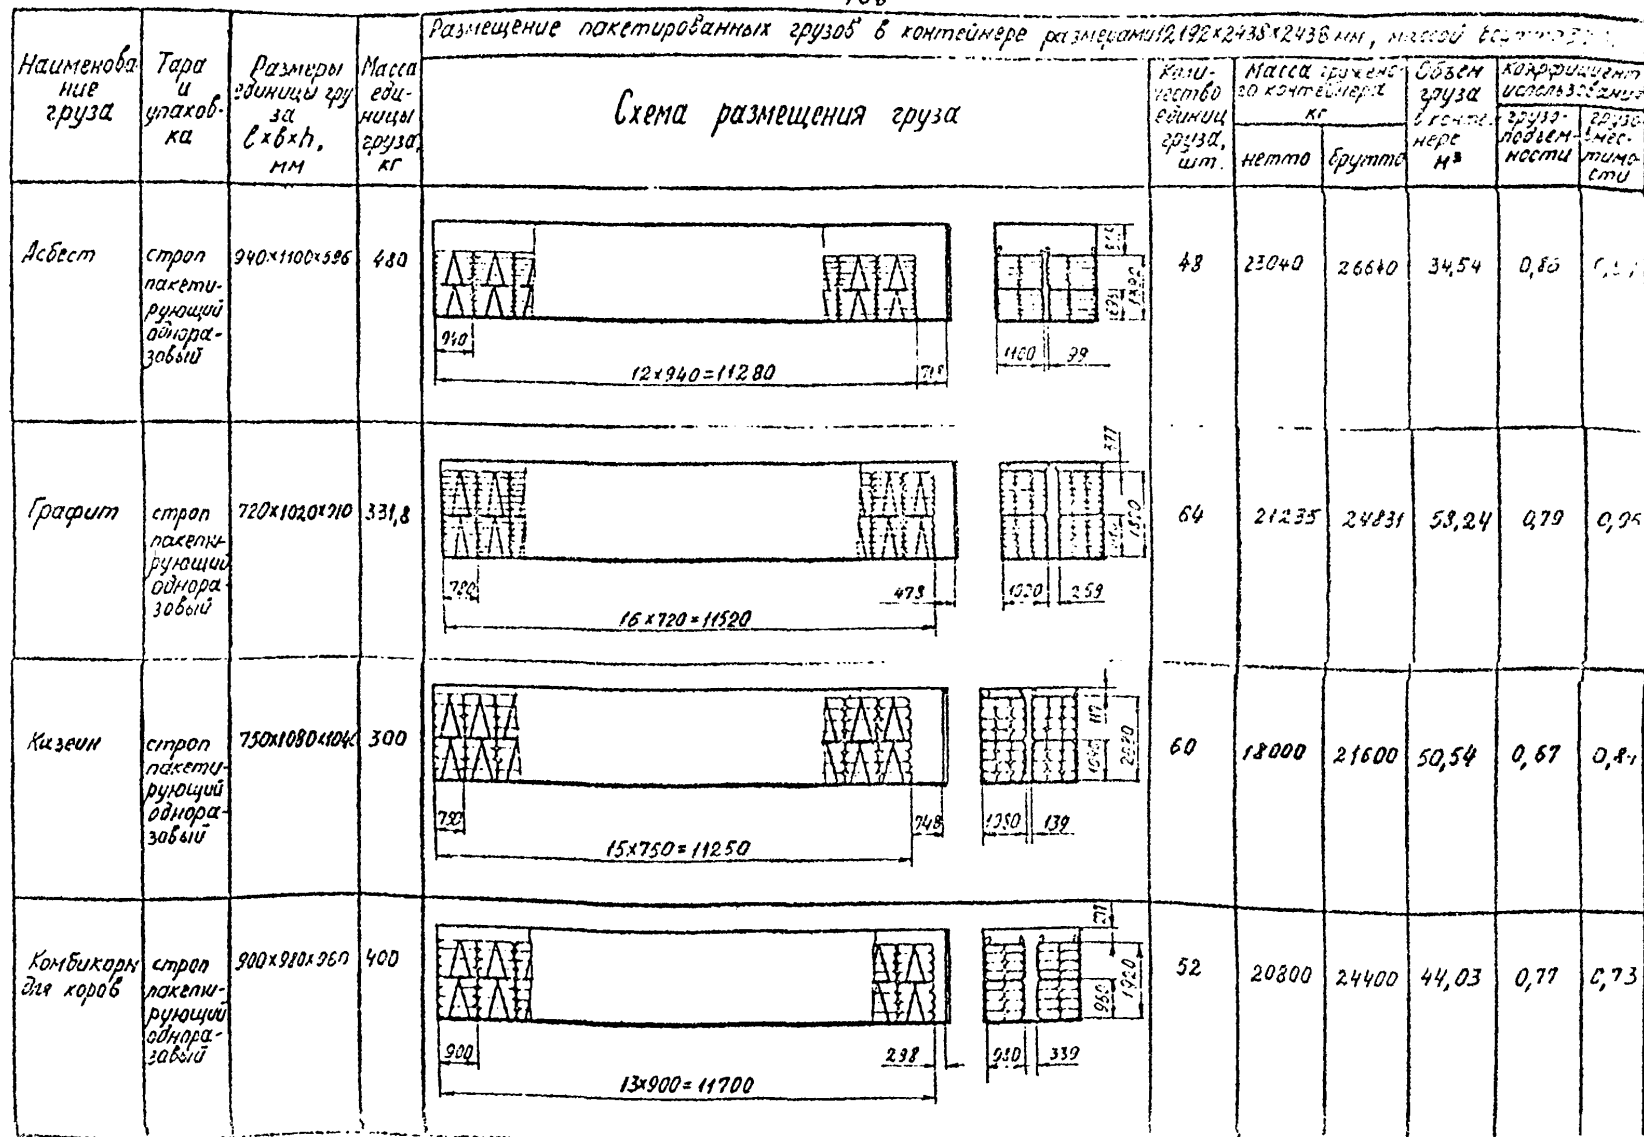 Размещение пакетированных грузов в контейнере размерами 12192×2438×2438 мм, массой брутто
Наименова
ние
груза
Тара
и
упаков-
ка
Размеры
единицы гру
за
l×b×h,
мм
Масса
еди-
ницы
груза,
кг
Схема размещения груза
Коли-
чество
единиц
груза,
шт.
Масса гружено-
го контейнера
кг
нетто
брутто
Объем
груза
в конте-
нере
м³
Коэффициент
использования
грузо-
подъем-
ности
грузо-
вмес-
тимо-
сти
Асбест
строп
пакети-
рующий
однора-
зовый
940×1100×596
480
940
12×940=11280
1100
99
48
23040
26640
34,54
0,86
Графит
строп
пакети-
рующий
однора-
зовый
720×1020×910
331,8
780
16×720=11520
473
1020
259
377
64
21235
24831
53,24
0,79
Кизеин
строп
пакети-
рующий
однора-
зовый
750×1080×104
300
750
15×750=11250
748
1080
139
60
18000
21600
50,54
0,67
Комбикорм
для коров
строп
пакети-
рующий
однора-
зовый
900×980×960
400
900
13×900=11700
238
980
339
960
1920
52
20800
24400
44,03
0,77
0,73